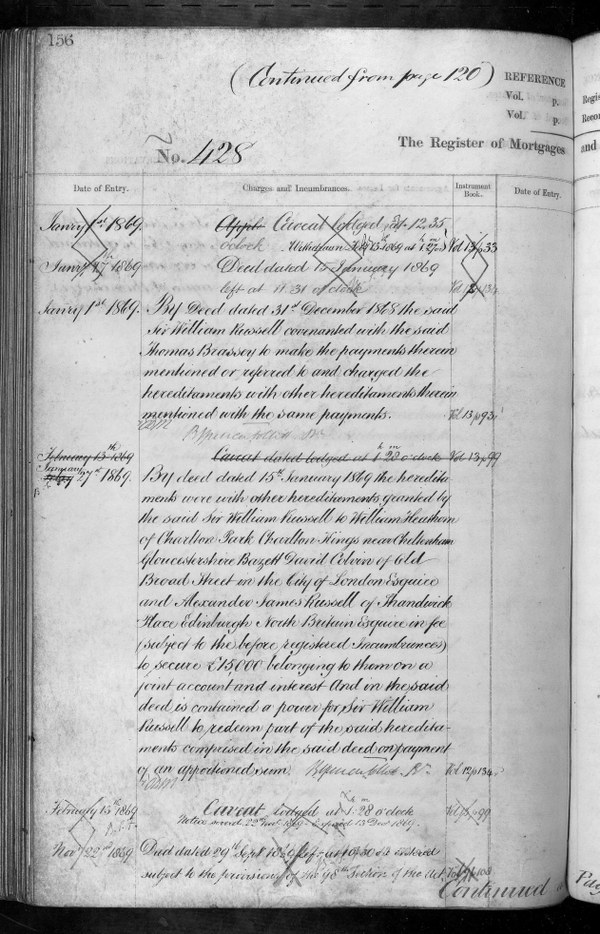 156
(Continued from page 120)
REFERENCE
Vol. p.
Vol. p.
No. 428
The Register of Mortgages
Date of Entry. Charges and Incumbrances. Instrument Book. Date of Entry.
Janry 1st 1869. Appln Caveat lodged at 12.35
o'clock Withdrawn Vol 13 p 33
Janry 1869 Deed dated 15 January 1869
left at 11 31 o'clock
Janry 1st 1869. By Deed dated 31st December 1868 the said
Sir William Russell covenanted with the said
Thomas Brassey to make the payments therein
mentioned or referred to and charged the
hereditaments with other hereditaments therein
mentioned with the same payments. Vol 13 p 93
February 15th 1869 Caveat dated lodged at 1h 28m o'clock Vol 13 p 99
January 27th 1869. By deed dated 15th January 1869 the heredita-
ments were with other hereditaments granted by
the said Sir William Russell to William Heathorn
of Charlton Park Charlton Kings near Cheltenham
Gloucestershire Bazett David Colvin of Old
Broad Street in the City of London Esquire
and Alexander James Russell of Shandwick
Place Edinburgh North Britain Esquire in fee
(subject to the before registered Incumbrances)
to secure £15,000 belonging to them on a
joint account and interest And in the said
deed is contained a power for Sir William
Russell to redeem part of the said heredita-
ments comprised in the said deed on payment
of an apportioned sum. Vol 12 p 134
February 15th 1869 Caveat lodged at 1h 28m o'clock
Novr 22nd 1869 Deed dated 29th Septr 1869 left at 10.30 is entered
subject to the provisions of the 98th Section of the Act
Continued
Regis
Recor
and